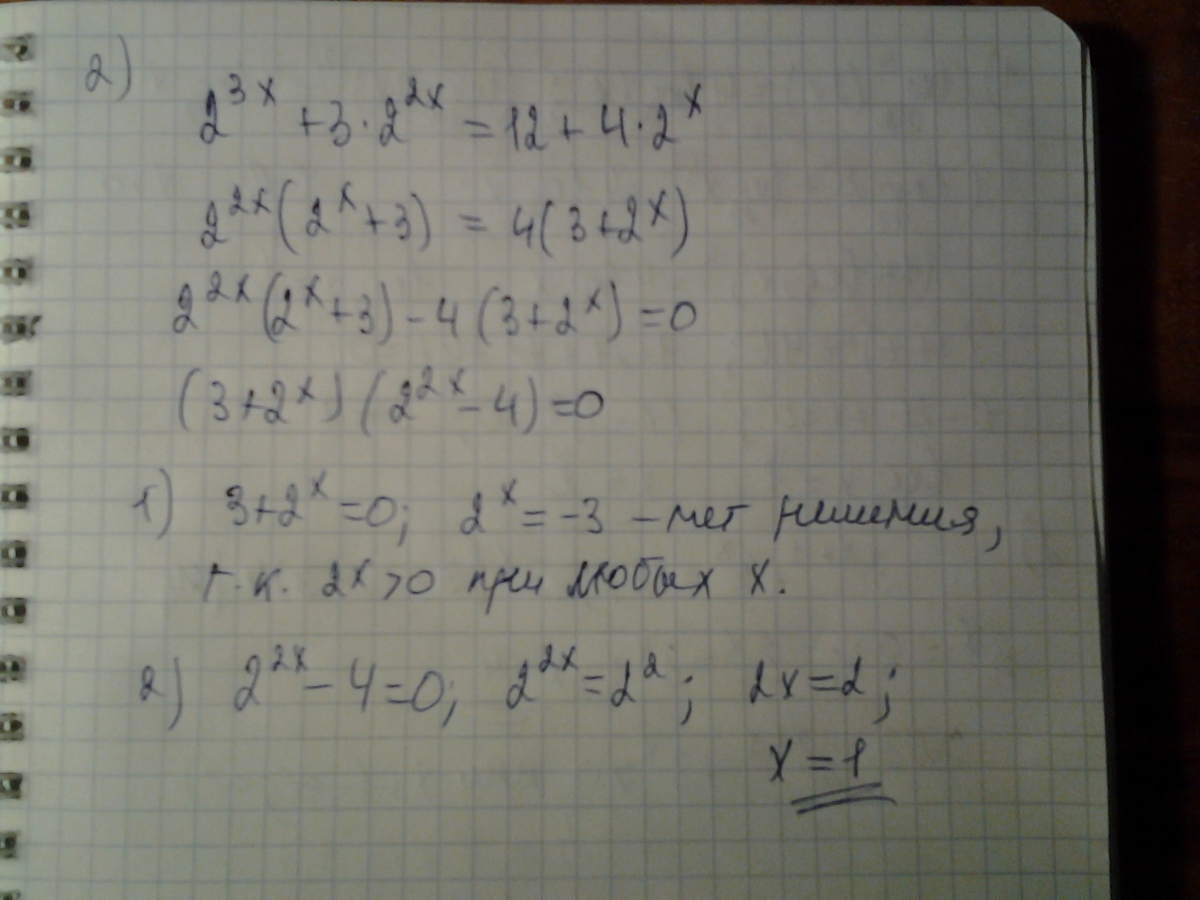 2)
2^{3x} + 3 · 2^{2x} = 12 + 4 · 2^x
2^{2x}(2^x + 3) = 4(3 + 2^x)
2^{2x}(2^x + 3) - 4(3 + 2^x) = 0
(3 + 2^x)(2^{2x} - 4) = 0
1) 3 + 2^x = 0; 2^x = -3 - нет решения,
т.к. 2^x > 0 при любых x.
2) 2^{2x} - 4 = 0; 2^{2x} = 2^2; 2x = 2;
x = 1